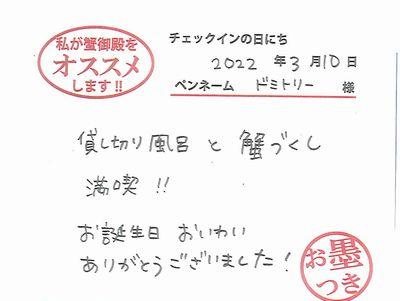 私が蟹御殿を
オススメ
します!!
チェックインの日にち
2022 年 3 月 10 日
ペンネーム ドミトリー 様
貸し切り風呂 と 蟹づくし
満喫 !!
お誕生日 おいわい
ありがとうございました!
お墨
つき